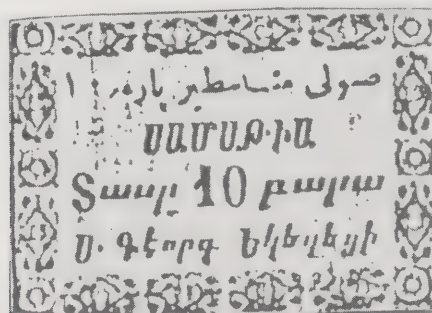 صولى مناسطير پاره ١
ՍԱՄԱԹԻԱ
Տասը 10 բարա
Ս. Գէորգ Եկեղեցի